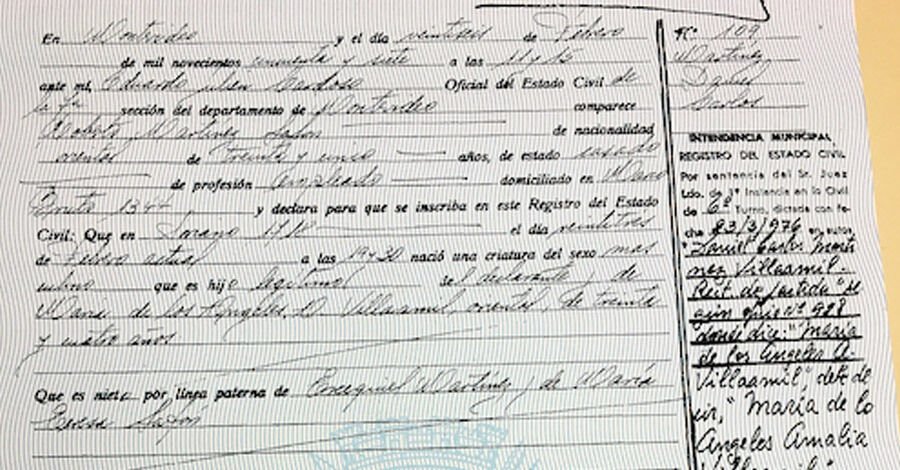 En Montevideo y el día veintiseis de Febrero
de mil novecientos cincuenta y siete a las 11 y 15
ante mí, Eduardo Julién Cardoso Oficial del Estado Civil de
la 7ª sección del departamento de Montevideo comparece
Roberto Martinez Safon de nacionalidad
oriental de treinta y cinco años, de estado casado
de profesión empleado domiciliado en
1344 y declara para que se inscriba en este Registro del Estado
Civil: Que en Durazno el día veintitres
de Febrero actual a las 19 y 30 nació una criatura del sexo mas
culino que es hijo legítimo del declarante y de
María de los Angeles A. Villaamil, oriental, de treinta
y cuatro años
Que es nieto por línea paterna de Exequiel Martínez y de María
Teresa Safon
Nº 109
Martínez
Daniel
Carlos
INTENDENCIA MUNICIPAL
REGISTRO DEL ESTADO CIVIL
Por sentencia del Sr. Juez
Ldo. de 1ª Instancia en lo Civil
de 6º Turno, dictada con fe-
cha 23/3/976 en autos
"Daniel Carlos Martí
nez Villaamil.
Rect. de partida" se
gún oficio Nº 988
donde dice: "María
de los Angeles A.
Villaamil", debe de
cir, "María de lo
Angeles Amalia
Villaamil"